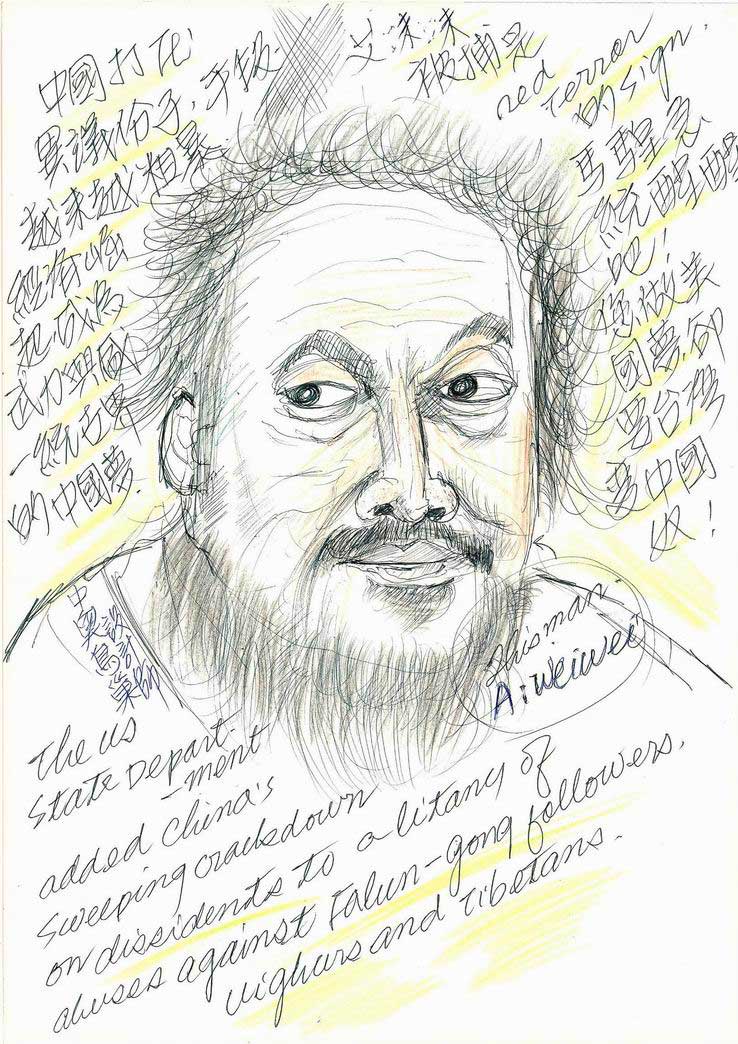 中國打
異議份子，手段
越来越粗暴
經済崛
起成為
武力興國
一統世界
的中國夢.
艾未未
被捕是
red terror
的sign.
馬聖急
統醒醒
吧！
您做美
國夢.卻
要台灣
变中國
奴！
中奥鳥巢
設計師
This man.
Ai weiwei
The US
State Depart-
-ment
added China's
sweeping crackdown
on dissidents to a litany of
abuses against Falun-gong followers,
uighurs and Tibetans.